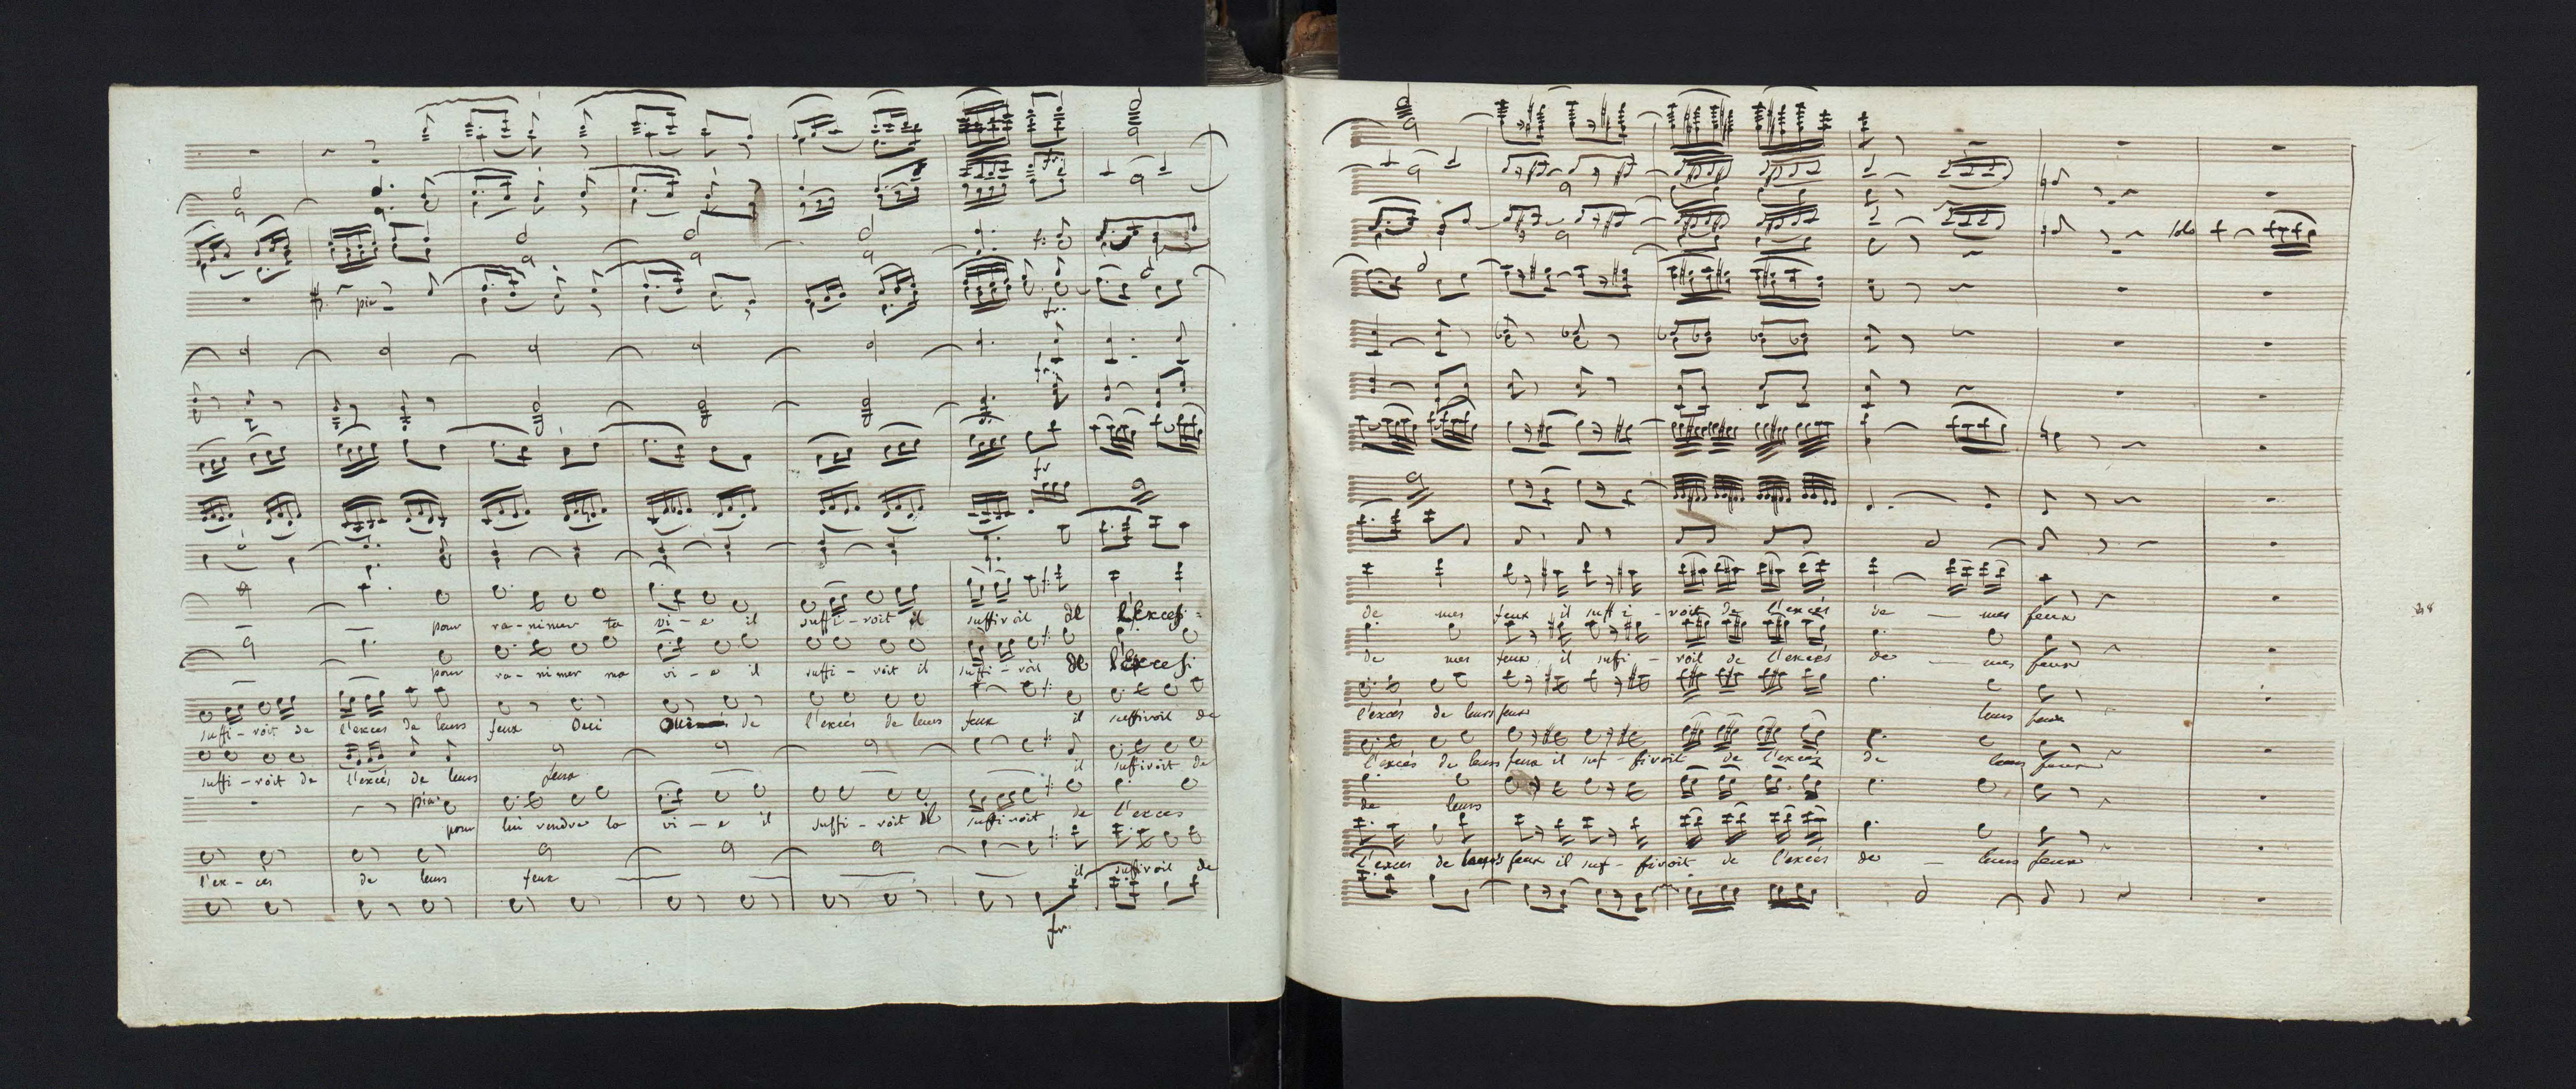 pia
f:
fr:
fr.
fr:
fr
pour ra-nimer ta vi-e il suffi-roit il suffiroit de l'Excesi-
pour ra-nimer ma vi-e il suffi-roit il suffi-roit de l'Excesi
suffi-roit de l'exces de leurs feux Oui Oui de l'excés de leurs feux il suffiroit de
suffi-roit de l'excés de leurs feux il suffiroit de
pia:
pour lui rendre la vi-e il suffi-roit il suffiroit de l'exces
l'ex-cès de leurs feux il suffiroit de
fr.
solo
de mes feux il suffi-roit de l'excés de mes feux
de mes feux il sufi-roit de l'excés de mes feux
l'excés de leurs feux leurs feux
l'excés de leurs feux il suf-firoit de l'excés de leurs feux
de leurs
l'exces de leurs feux il suf-firoit de l'excés de leurs feux